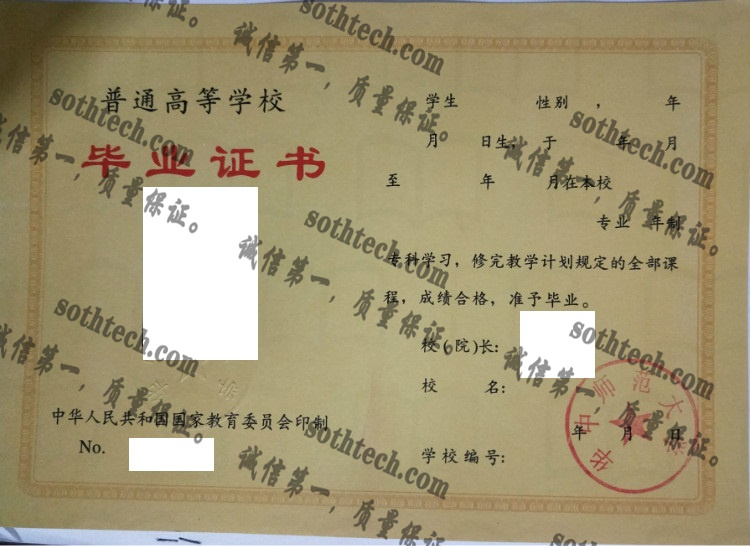 普通高等学校
毕业证书
中华人民共和国国家教育委员会印制
No.
学生 性别 , 年
月 日生, 于 年 月
至 年 月在本校
专业 年制
专科学习，修完教学计划规定的全部课
程，成绩合格，准予毕业。
校(院)长:
校 名:
年 月 日
学校编号:
华中师范大学
sothtech.com
诚信第一，质量保证。
sothtech.com
诚信第一，质量保证。
sothtech.com
诚信第一，质量保证。
sothtech.com
诚信第一，质量保证。
sothtech.com
诚信第一，质量保证。
sothtech.com
诚信第一，质量保证。
sothtech.com
诚信第一，质量保证。
sothtech.com